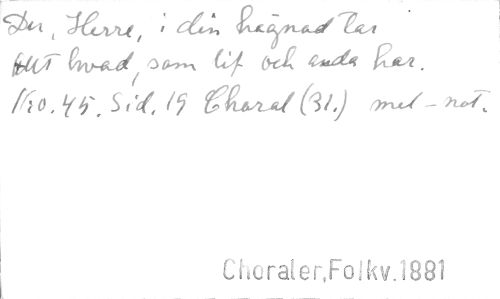 Du, Herre, i din hägnad tar
Allt hvad, som lif och anda har.
No. 45. Sid. 19 Choral (31.) mel-not.
Choraler, Folkv. 1881